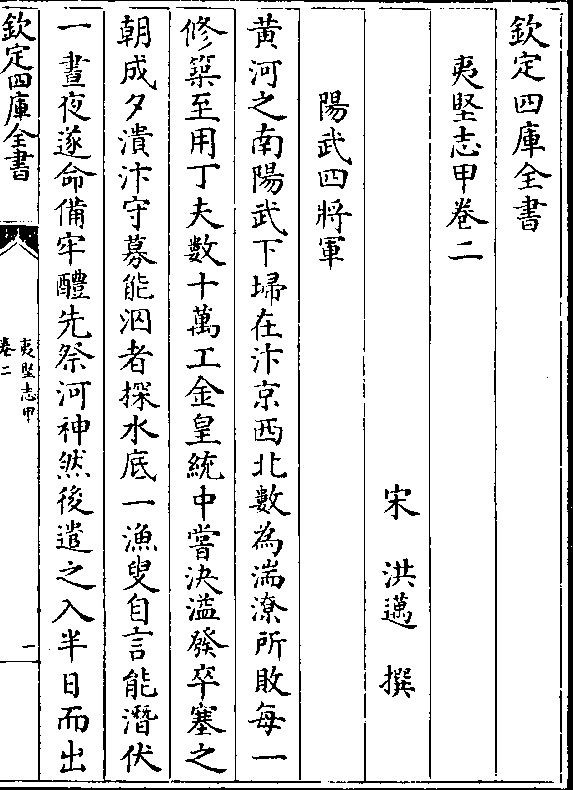 欽定四庫全書
夷堅志甲卷二
宋 洪邁 撰
陽武四將軍
黄河之南陽武下埽在汴京西北數為湍潦所敗每一
修築至用丁夫數十萬工金皇統中嘗決溢發卒塞之
朝成夕潰汴守募能泅者探水底一漁叟自言能潛伏
一晝夜遂命備牢醴先祭河神然後遣之入半日而出
欽定四庫全書
夷堅志甲
卷二
一